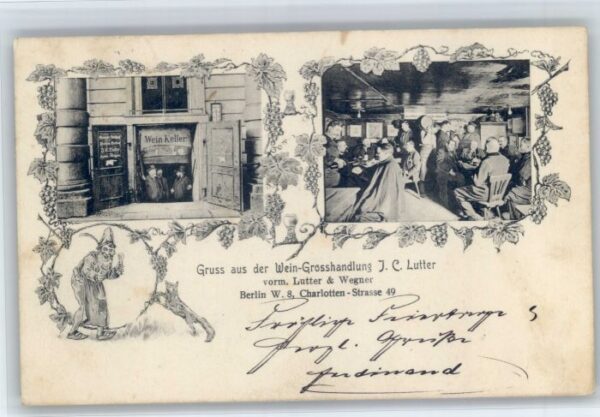 Wein Keller
Gruss aus der Wein-Grosshandlung J. C. Lutter
vorm. Lutter & Wegner
Berlin W. 8, Charlotten-Strasse 49
Fröhliche Feiertage
herzl. Grüße
Ferdinand